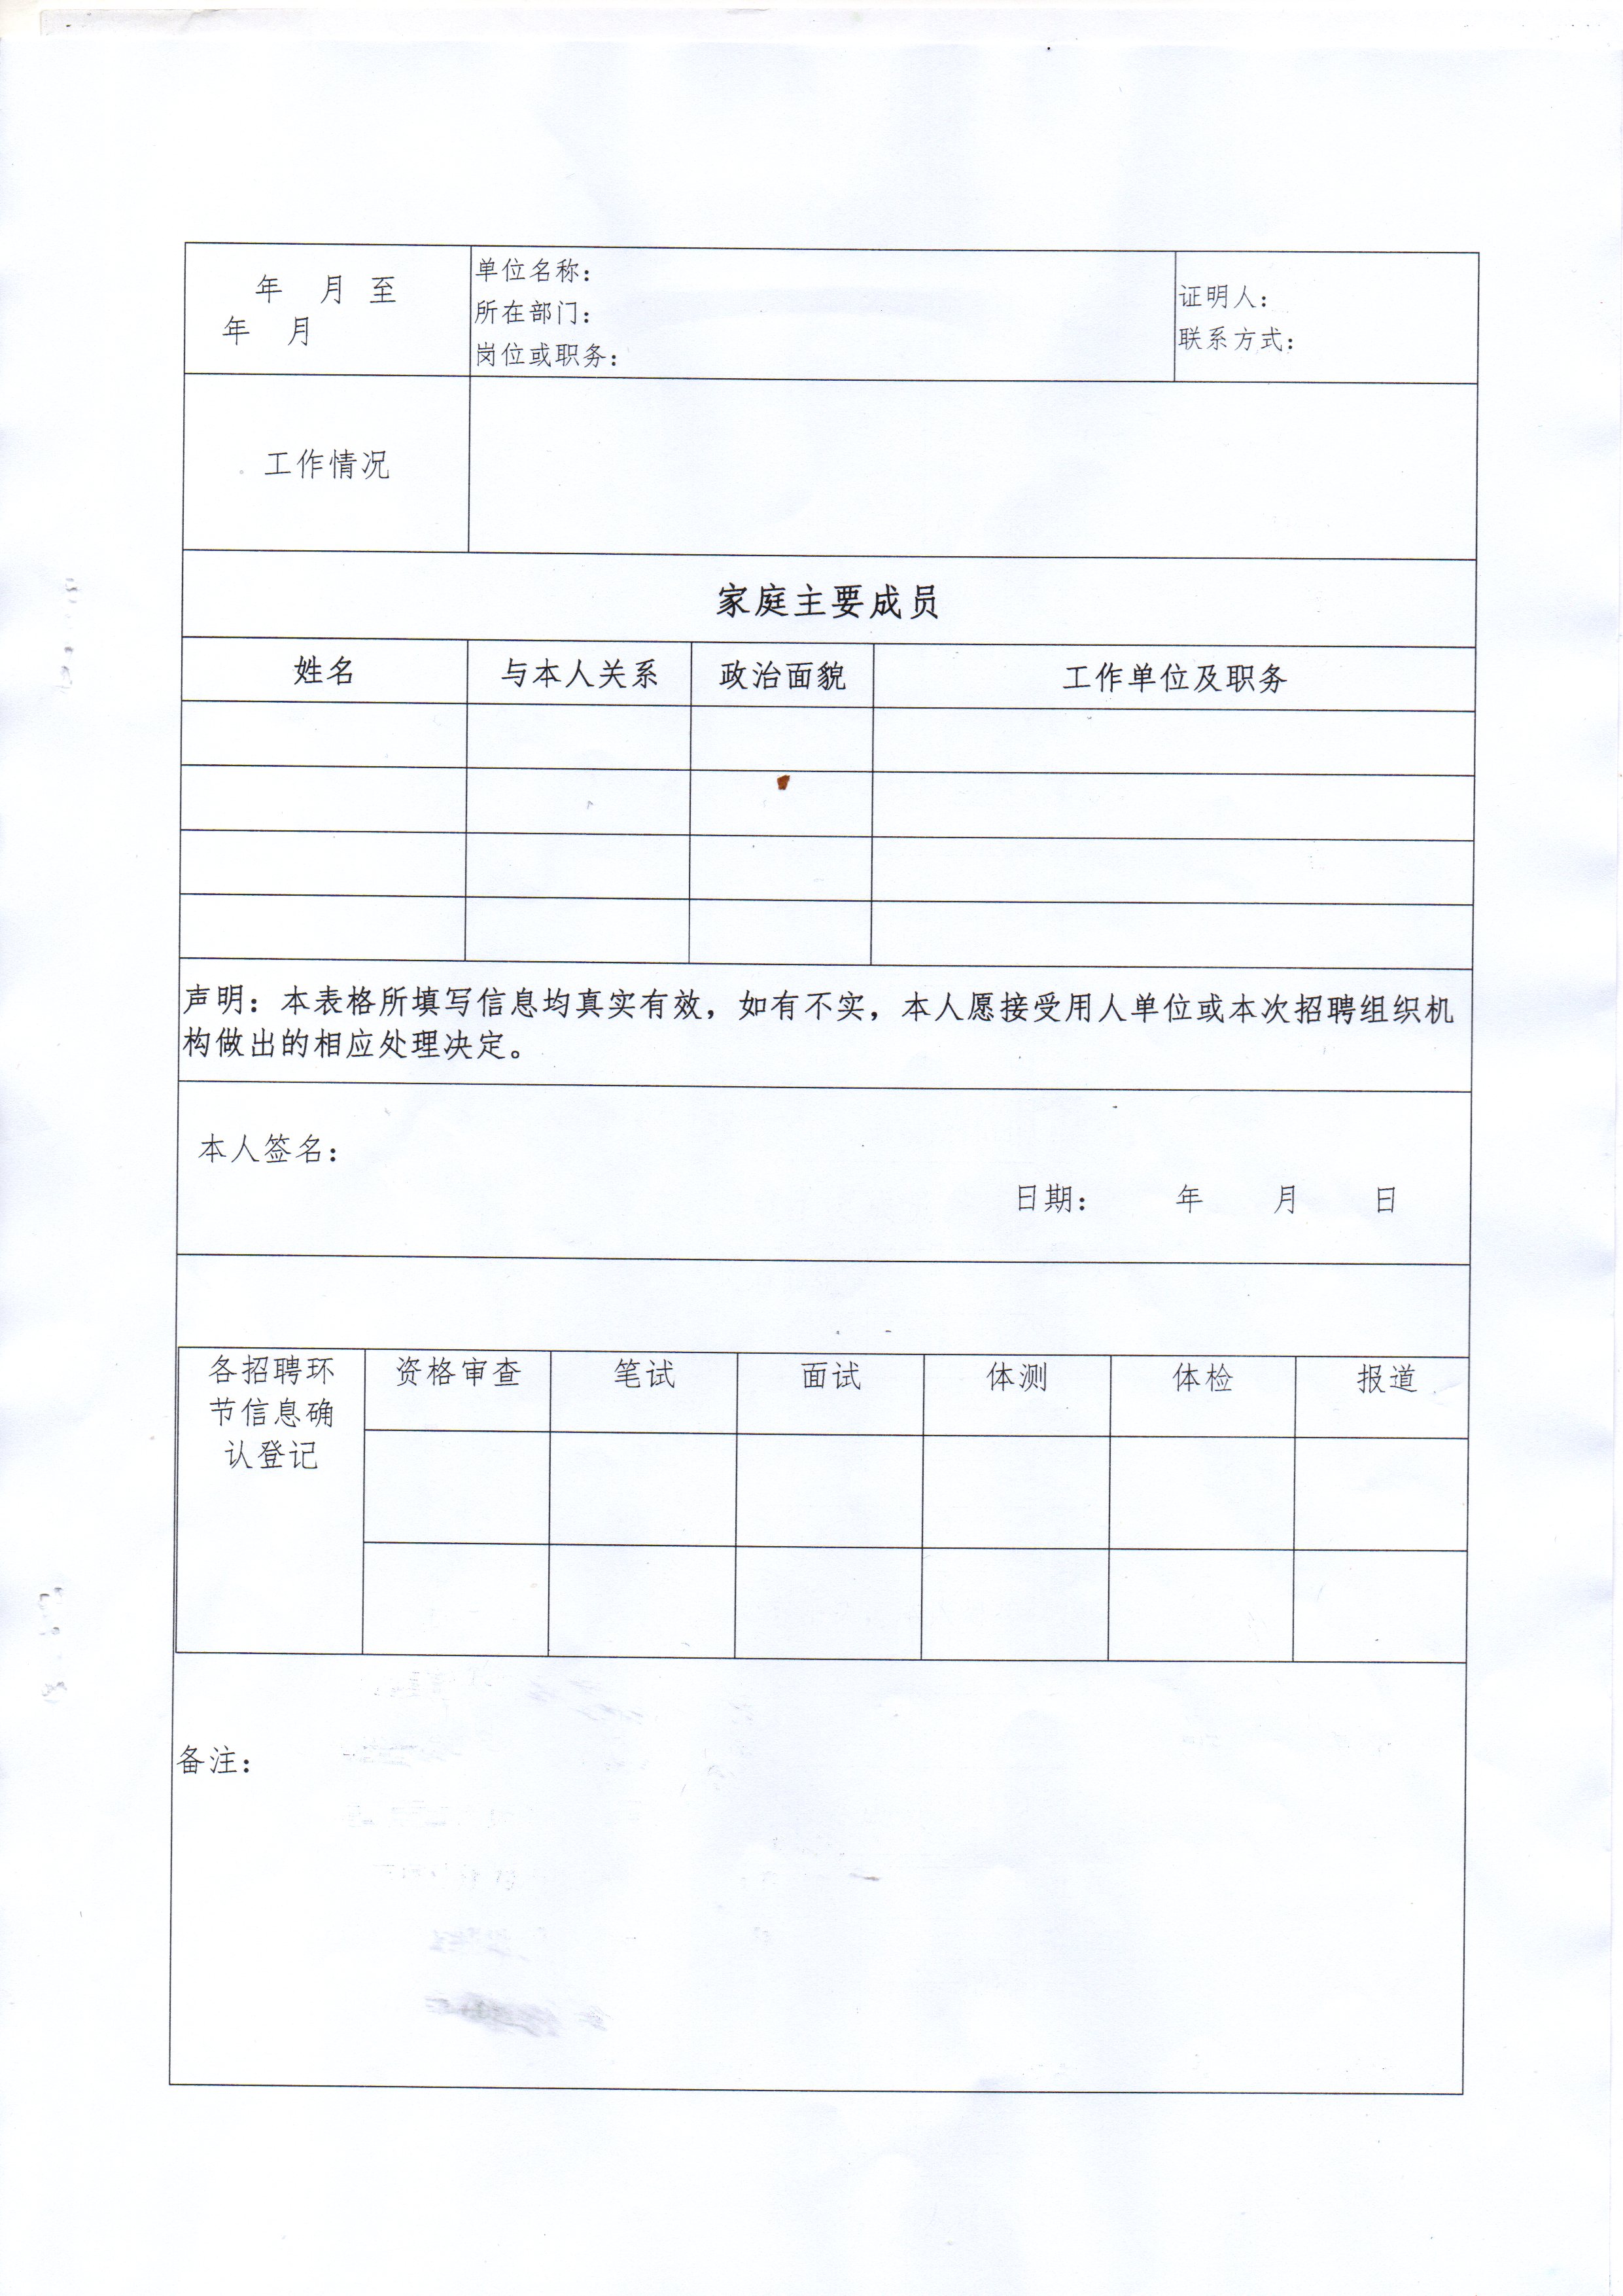 年 月 至
年 月
单位名称：
所在部门：
岗位或职务：
证明人：
联系方式：
工作情况
家庭主要成员
姓名 与本人关系 政治面貌 工作单位及职务
声明：本表格所填写信息均真实有效，如有不实，本人愿接受用人单位或本次招聘组织机
构做出的相应处理决定。
本人签名：
日期： 年 月 日
各招聘环
节信息确
认登记
资格审查 笔试 面试 体测 体检 报道
备注：